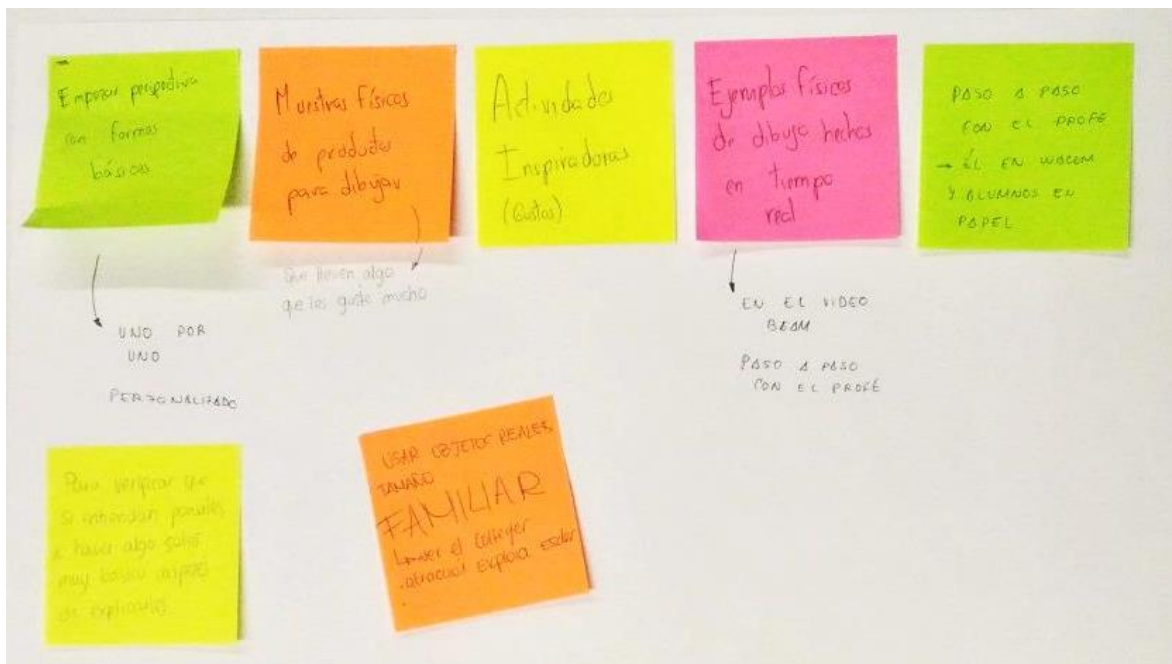 Empezar perspectiva
con formas
básicas
UNO POR
UNO
PERSONALIZADO
Muestras Físicas
de productos
para dibujar
Que lleven algo
que les guste mucho
Actividades
Inspiradoras
(Gustos)
Ejemplos físicos
de dibujo hechos
en tiempo
real
EN EL VIDEO
BEAM
PASO A PASO
CON EL PROFE
PASO A PASO
CON EL PROFE
→ ÉL EN WACOM
Y ALUMNOS EN
PAPEL
Para verificar que
si entiendan ponerles
a hacer algo solos
muy básico después
de explicarles
USAR OBJETOS REALES,
TAMAÑO
FAMILIAR
el